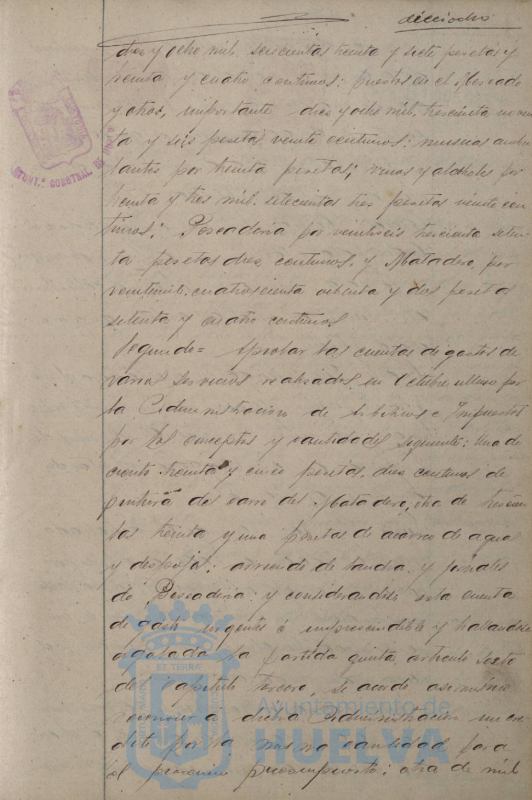 dieciocho
diez y ocho mil seiscientas treinta y siete pesetas y
treinta y cuatro centimos: puestos en el Mercado
y otros, importante diez y ocho mil, trescientas noven
ta y seis pesetas veinte centimos; musicas ambu
lantes por treinta pesetas; vinos y alcoholes por
treinta y tres mil setecientas tres pesetas veinte cen
timos; Pescaderia por veintiseis trescientas seten
ta pesetas diez centimos, y Matadero, por
veintemil cuatrocientas ochenta y dos pesetas
setenta y cuatro centimos
Segundo = Aprobar las cuentas de gastos de
varios servicios realizados en Octubre ultimo por
la Administracion de Arbitrios e Impuestos
por los conceptos y cantidades siguientes: Una de
ciento treinta y cinco pesetas, diez centimos de
pintura del carro del Matadero, otra de trescien
tas treinta y una pesetas de acarreo de agua
y despojos; arriendo de tienda y jornales
de Pescaderia y considerandose esta cuenta
de gasto urgente é imprescindible y hallandose
agotada la partida quinta, articulo sexto
del capitulo tercero, se acordo asimismo
reconocer a dicha Administracion un cre
dito por la misma cantidad para
el proximo presupuesto; otra de mil
Ayuntamiento de
HUELVA